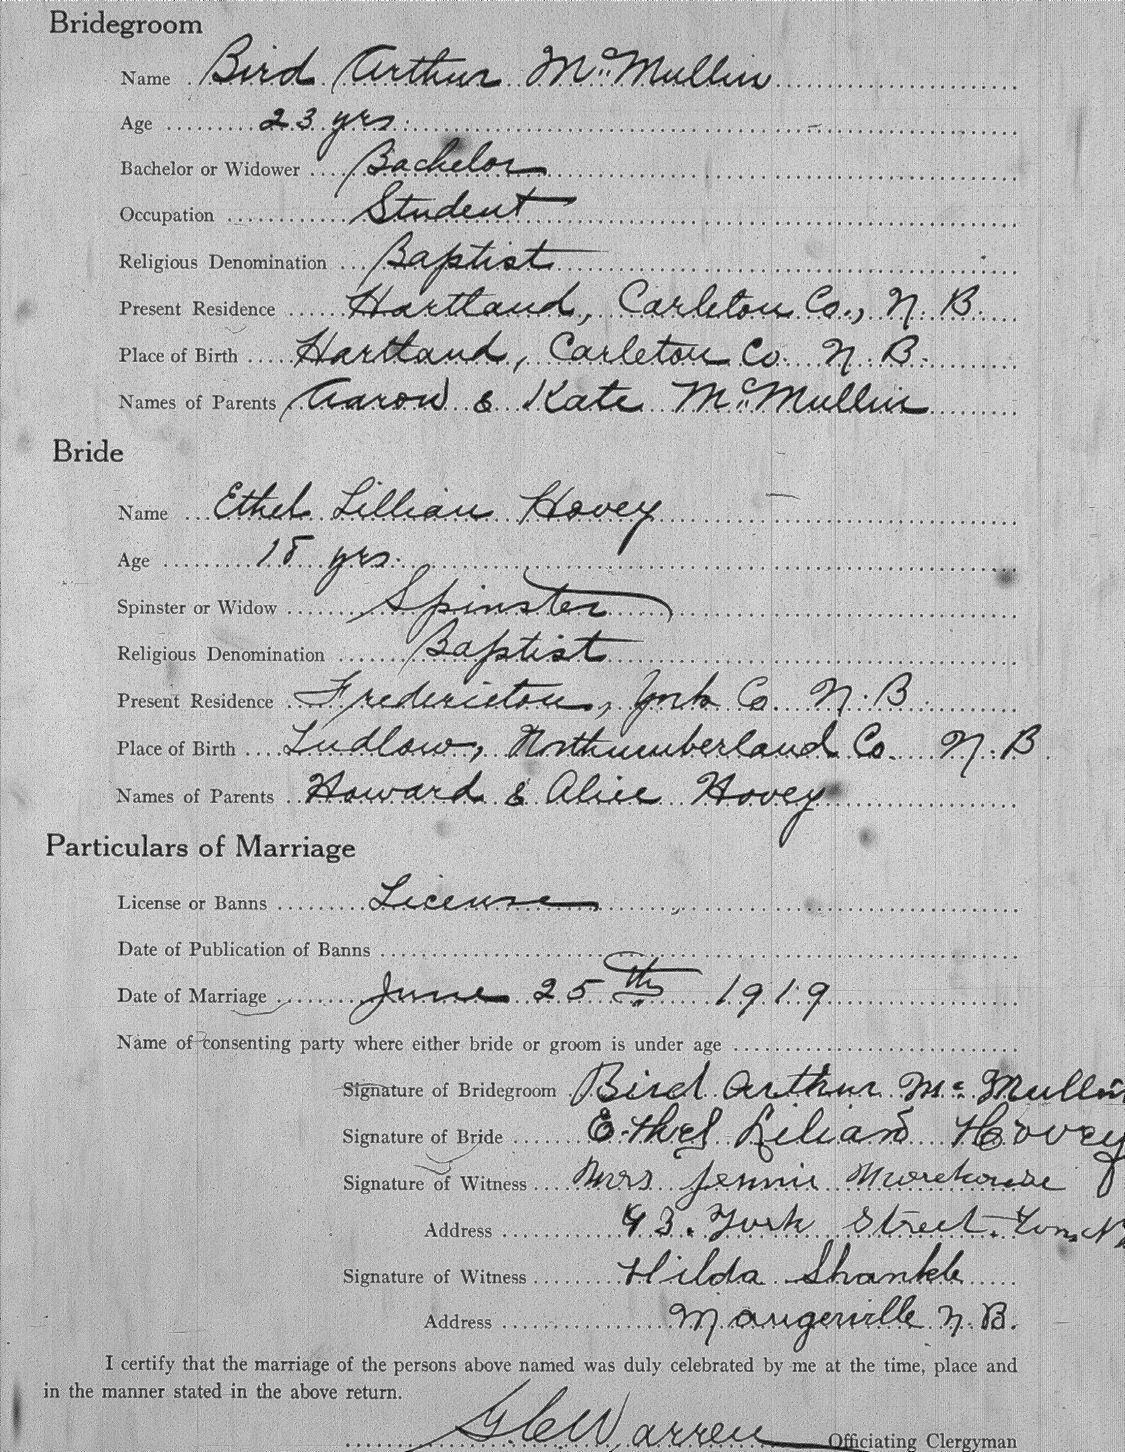 Bridegroom
Name Bird Arthur McMullin
Age 23 yrs.
Bachelor or Widower Bachelor
Occupation Student
Religious Denomination Baptist
Present Residence Hartland, Carleton Co., N. B.
Place of Birth Hartland, Carleton Co. N. B.
Names of Parents Aaron & Kate McMullin
Bride
Name Ethel Lillian Hovey
Age 18 yrs.
Spinster or Widow Spinster
Religious Denomination Baptist
Present Residence Fredericton, York Co. N. B
Place of Birth Ludlow, Northumberland Co. N. B.
Names of Parents Howard & Alice Hovey
Particulars of Marriage
License or Banns License
Date of Publication of Banns
Date of Marriage June 25th 1919
Name of consenting party where either bride or groom is under age
Signature of Bridegroom Bird Arthur McMullin
Signature of Bride Ethel Lilian Hovey
Signature of Witness Mrs Jennie Morehouse
Address 93. York Street.
Signature of Witness Hilda Shankle
Address Maugerville N. B.
I certify that the marriage of the persons above named was duly celebrated by me at the time, place and
in the manner stated in the above return.
Warren Officiating Clergyman